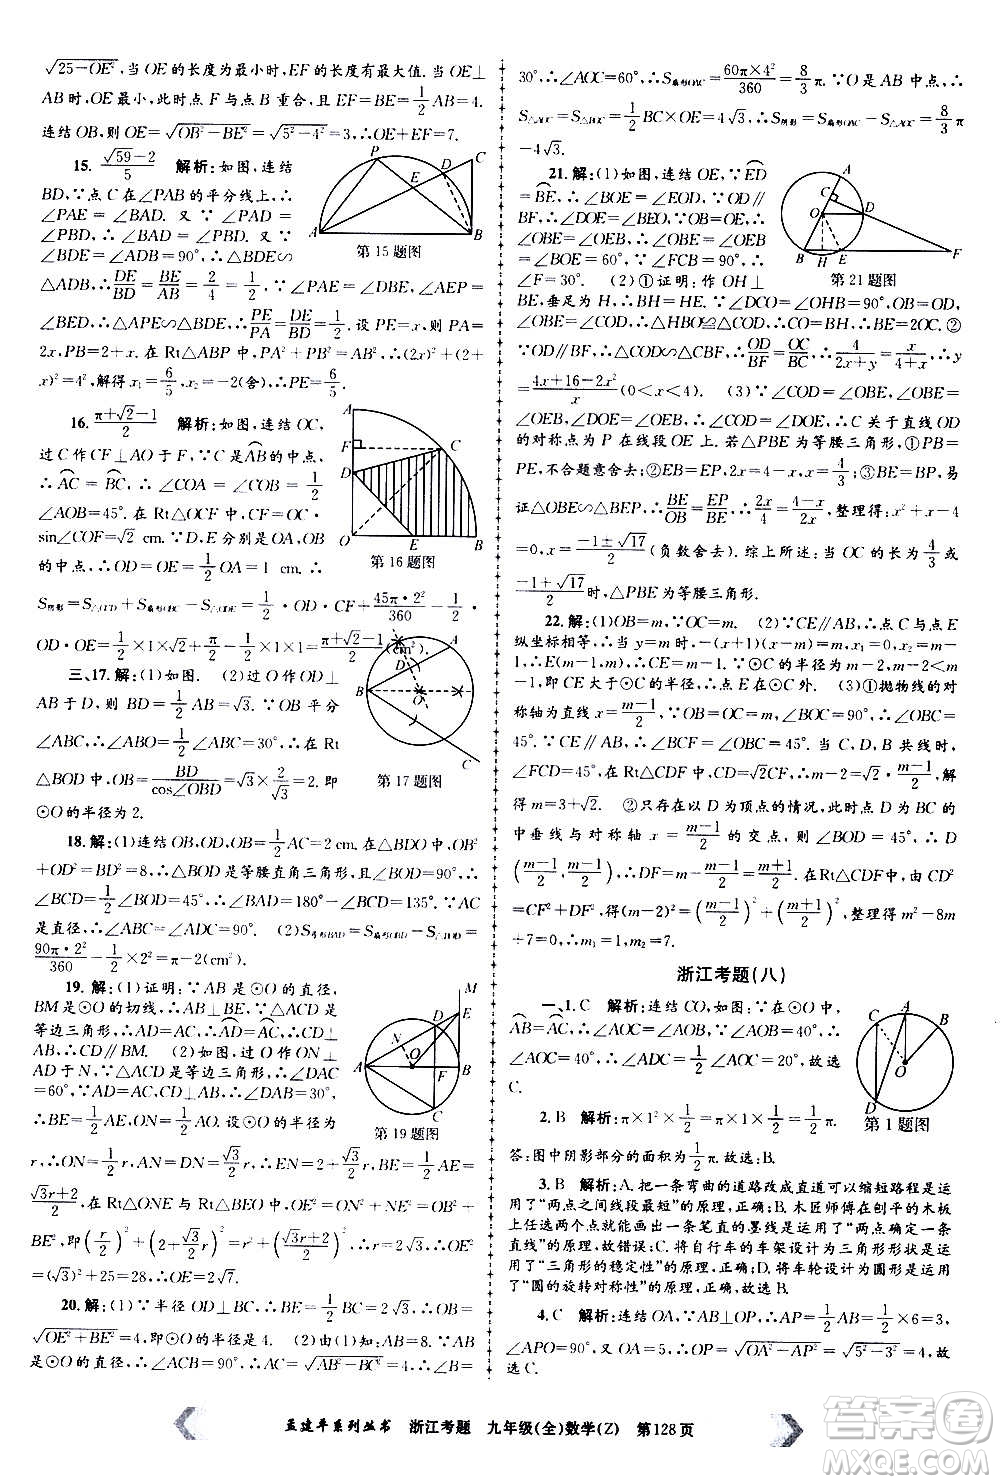 √(25−OE²), 当 OE 的长度为最小时, EF 的长度有最大值. 当 OE⊥
AB 时, OE 最小, 此时点 F 与点 B 重合, 且 BE=1/2 AB=4.
连结 OB, 则 OE=√(OB²−BE²)=√(5²−4²)=3, ∴OE+EF=7.
15. (√59−2)/5 解析: 如图, 连结
BD, ∵点 C 在∠PAB 的平分线上, ∴
∠PAE = ∠BAD. 又∵∠PAD =
∠PBD, ∴ ∠BAD = ∠PBD. 又∵
∠BDE=∠ADB=90°, ∴△BDE∽
△ADB, ∴DE/BD=BE/AB=2/4=1/2. ∵∠P=∠ADB=90°, ∠AEP=
∠BED, ∴△APE∽△BDE, ∴PE/PA=DE/BD=1/2. 设 PE=x, 则 PA=
2x, PB=2+x. 在 Rt△ABP 中, PA²+PB²=AB², ∴(2x)²+(2+
x)²=4², 解得 x₁=6/5, x₂=−2(舍), ∴PE=6/5.
16. (π+√2−1)/2 解析: 如图, 连结 OC,
过 C 作 CF⊥AO 于 F, ∵C 是 AB 的中点,
∴AC = BC, ∴∠COA = ∠COB = 1/2
∠AOB=45°. 在 Rt△OCF 中, CF=OC·
sin∠COF=√2 cm. ∵D, E 分别是 OA, OB
的中点, ∴ OD = OE = 1/2 OA = 1 cm. ∴
第15题图
第16题图
S阴影=S△OCD+S扇形OBC−S△ODE=1/2·OD·CF+45π·2²/360−1/2
OD·OE=1/2×1×√2+1/2π−1/2×1×1=(π+√2−1)/2(cm²).
三、17. 解: (1)如图. (2)过 O 作 OD⊥AB
于 D, 则 BD=1/2 AB=√3. ∵OB 平分
∠ABC, ∴∠ABO=1/2∠ABC=30°, ∴在 Rt
△BOD 中, OB=BD/cos∠OBD=√3×2/√3=2. 即
⊙O 的半径为 2.
第17题图
18. 解: (1)连结 OB, OD, OB=1/2 AC=2 cm. 在△BDO 中, OB²
+OD²=BD²=8, ∴△BOD 是等腰直角三角形, ∴∠BOD=90°,
∠DBO=45°, ∴∠BAD=180°−∠BCD=135°. ∵AC
是直径, ∴∠ADC=90°. (2)S弓形BAD=S扇形OBAD−S△OBD=
90π·2²/360−1/2×2²=π−2(cm²).
19. 解: (1)证明: ∵AB 是⊙O 的直径,
BM 是⊙O 的切线, ∴AB⊥BE. ∵△ACD 是
等边三角形, ∴AD=AC, ∴AD=AC, ∴CD⊥AB,
∴CD∥BM. (2)如图, 连结 ON 并
AD 于 N, ∵△ACD 是等边三角形, ∴∠DAC
=60°, ∵AD=AC, CD⊥AB, ∴∠DAB=30°,
∴BE=1/2 AE, ON=1/2 AO. 设⊙O 的半径为
第19题图
r, ∴ON=1/2 r, AN=DN=√3/2 r, ∴EN=2+√3/2 r, BE=1/2 AE=
(√3r+2)/2, 在 Rt△ONE 与 Rt△BEO 中, OE²=ON²+NE²=OB²+
BE², 即(r/2)²+(2+√3/2 r)²=r²+((√3r+2)/2)², ∴r=2√3, ∴OE²=
(√3)²+25=28, ∴OE=2√7.
20. 解: (1)∵半径 OD⊥BC, ∴BE=1/2 BC=2√3, ∴OB=
√(OE²+BE²)=4, ∴⊙O 的半径是 4. (2)由(1)知: AB=8. ∵AB 是
⊙O 的直径, ∴∠ACB=90°, ∴AC=√(AB²−BC²)=4, ∴∠ABC=
30°, ∴∠AOC=60°, ∴S扇形AOC=60π×4²/360=8/3π. ∵O 是 AB 中点, ∴
S△AOC=1/2 S△ABC=1/4 BC×AC=4√3, ∴S阴影=S扇形AOC−S△AOC=8/3
π−4√3.
21. 解: (1)如图, 连结 OE, ∵ED
=BE, ∴∠BOE=∠EOD, ∵OD∥BF, ∴
∠DOE=∠BEO, ∵OB=OE, ∴
∠OBE=∠OEB, ∴∠OBE=∠OEB=
∠BOE = 60°, ∵∠FCB = 90°, ∴
∠F=30°. (2)①证明: 作 OH⊥
第21题图
BE, 垂足为 H, ∵∠DCO=∠OHB=90°, OB=OD,
∠OBE=∠COD, ∴△HBO≌△COD, ∴CO=BH=1/2 BE. ②
∵OD∥BF, ∴△COD∽△CBF, ∴OD/BF=OC/BC, ∴4/(2x+y)=x/(4+x), ∴y
=(4x+16−2x²)/x(0<x<4). (3)∵∠COD=∠OBE, ∠OBE=
∠OEB, ∠DOE=∠OEB, ∴∠COD=∠DOE, ∴C 关于直线 OD
的对称点为 P 在线段 OE 上. 若△PBE 为等腰三角形, ①PB=
PE, 不合题意舍去; ②EB=EP, 2x=4−x, x=4/3; ③BE=BP, 易
证△OBE∽△BEP, ∴BE/OB=EP/BE, ∴2x/4=(4−x)/2x, 整理得: x²+x−4
=0, 解得 x=(−1±√17)/2(负数舍去). 综上所述: 当 OC 的长为 4/3 或
(−1+√17)/2 时, △PBE 为等腰三角形.
22. 解: (1)OB=OC. (2)∵CE∥AB, ∴点 C 与点 E
纵坐标相等, ∴当 y=m 时, −(x+1)(x−m)=m, ∴x=0 或 x
=m−1, ∴CE=1−m, ∵⊙C 的半径为−m, 又 m<0, ∴−m<1−m
−m, 即 CE 大于⊙C 的半径, ∴点 E 在⊙C 外. (3)①抛物线的对
称轴为直线 x=(m−1)/2. ∵OB=OC=m, ∠BOC=90°, ∴∠OBC=
45°. ∵CE∥AB, ∴∠BCF=∠OBC=45°. 当 C, D, B 共线时,
∠FCD=45°. 在 Rt△CDF 中, CF=DF, ∴(m−1)/2=m−(m−1)/2, 解
得 m=3. ②只考虑以 D 为顶点的情况, 此时点 D 为 BC 的
中垂线与对称轴 x=(m−1)/2 的交点, ∠BOD=45°, ∴D
((m−1)/2, (m−1)/2), ∴CF=(m−1)/2. 在 Rt△CDF 中, 由 CD²
=CF²+DF²=((m−1)/2)²+(m−(m−1)/2)², 整理得 m²−8m
+7=0, ∴m₁=1(舍去), m₂=7.
浙江考题(八)
一、1. C 解析: 连结 CO, 如图: ∵在⊙O 中,
AB = AC, ∴∠AOC = ∠AOB. ∵∠AOB = 40°, ∴
∠AOC=40°, ∴∠ADC=1/2∠AOC=20°, 故选
C.
第1题图
2. B 解析: π×1²×1/2=π×1×1/2=1/2π.
答: 图中阴影部分的面积为1/2π; 故选: B.
3. B 解析: A. 把一条弯曲的道路改成直道可以缩短路程是
运用了“两点之间线段最短”的原理, 正确; B. 木匠师傅在刨平的木条
上任选两个点就能画出一条笔直的墨线是运用了“两点确定一条
直线”的原理, 故错误; C. 将自行车的车架设计为三角形形状是运
用了“三角形的稳定性”的原理, 正确; D. 将车轮设计为圆形是运用
了“圆的旋转对称性”的原理, 正确, 故选: B.
4. C 解析: 连结 OA, ∵AB⊥OP, ∴AP=1/2 AB=1/2×6=3,
∠APO=90°, 又 OA=5, ∴OP=√(OA²−AP²)=√(5²−3²)=4, 故
选 C.
孟建平系列丛书 浙江考题 九年级(全)数学(Z) 第128页
答案圈
MXQE.COM